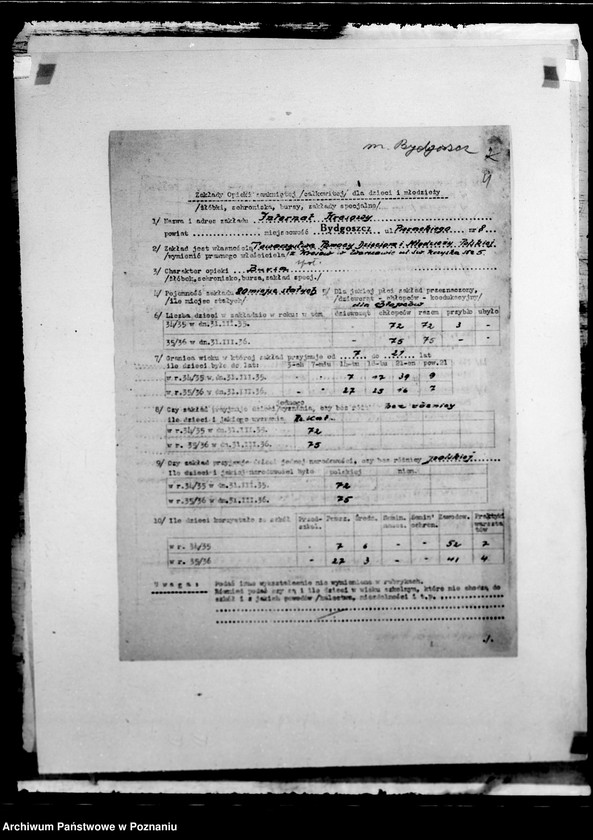 m. Bydgoszcz
2
9
Zakłady Opieki zamkniętej /całkowitej/ dla dzieci i młodzieży
/żłóbki, schroniska, bursy, zakłady specjalne/
1/ Nazwa i adres zakładu Internat Kresowy
powiat miejscowość Bydgoszcz ul. nr 8
2/ Zakład jest własnością Towarzystwa Pomocy Dzieciom i Młodzieży Polskiej
/wymienić prawnego właściciela/ z Kresów w Warszawie ul. Św. Krzyska No 5.
3/ Charakter opieki Bursa
/żłóbek, schronisko, bursa, zakład spec./
4/ Pojemność zakładu 80 miejsc stałych 5/ Dla jakiej płci zakład przeznaczony,
/ile miejsc stałych/ /dziewcząt - chłopców - koedukacyjny/
dla chłopców
6/ Liczba dzieci w zakładzie w roku: w tem dziewcząt chłopców razem przybło ubyło
34/35 w dn.31.III.35. - 72 72 3 -
35/36 w dn.31.III.36. - 75 75 - -
7/ Granica wieku w której zakład przyjmuje od 7 do 21 lat
ile dzieci było do lat: 3-ch 7-miu 14-tu 18-tu 21-en pow.21
w r.34/35 w dn.31.III.35. - - 7 39 9
w r.35/36 w dn.31.III.36. - - 27 25 16 7
8/ Czy zakład przyjmuje dzieci jednego wyznania, czy bez różnicy bez różnicy
ile dzieci i jakiego wyznania Rz. kat.
w r.34/35 w dn.31.III.35. 72
w r. 35/36 w dn.31.III.36. 75
9/ Czy zakład przyjmuje dzieci jednej narodowości, czy bez różnicy polskiej
ile dzieci i jakiej narodowości było polskiej niem.
w r.34/35 w dn.31.III.35. 72
w r.35/36 w dn.31.III.36. 75
10/ Ile dzieci korzystało ze szkół Przed-szkol. Powsz. Średn. Semin. naucz. Semin. ochron. Zawodow. Praktyki warszta tów
w r. 34/35 - 7 6 - - 52 7
w r. 35/36 - 27 3 - - 41 4
Uwaga: Podać inne wyszczególenie nie wymienione w rubrykach.
Również podać czy są i ile dzieci w wieku szkolnym, które nie chodzą do
szkół i z jakich powodów /kalectwo, niezdolności i t.p.
Archiwum Państwowe w Poznaniu